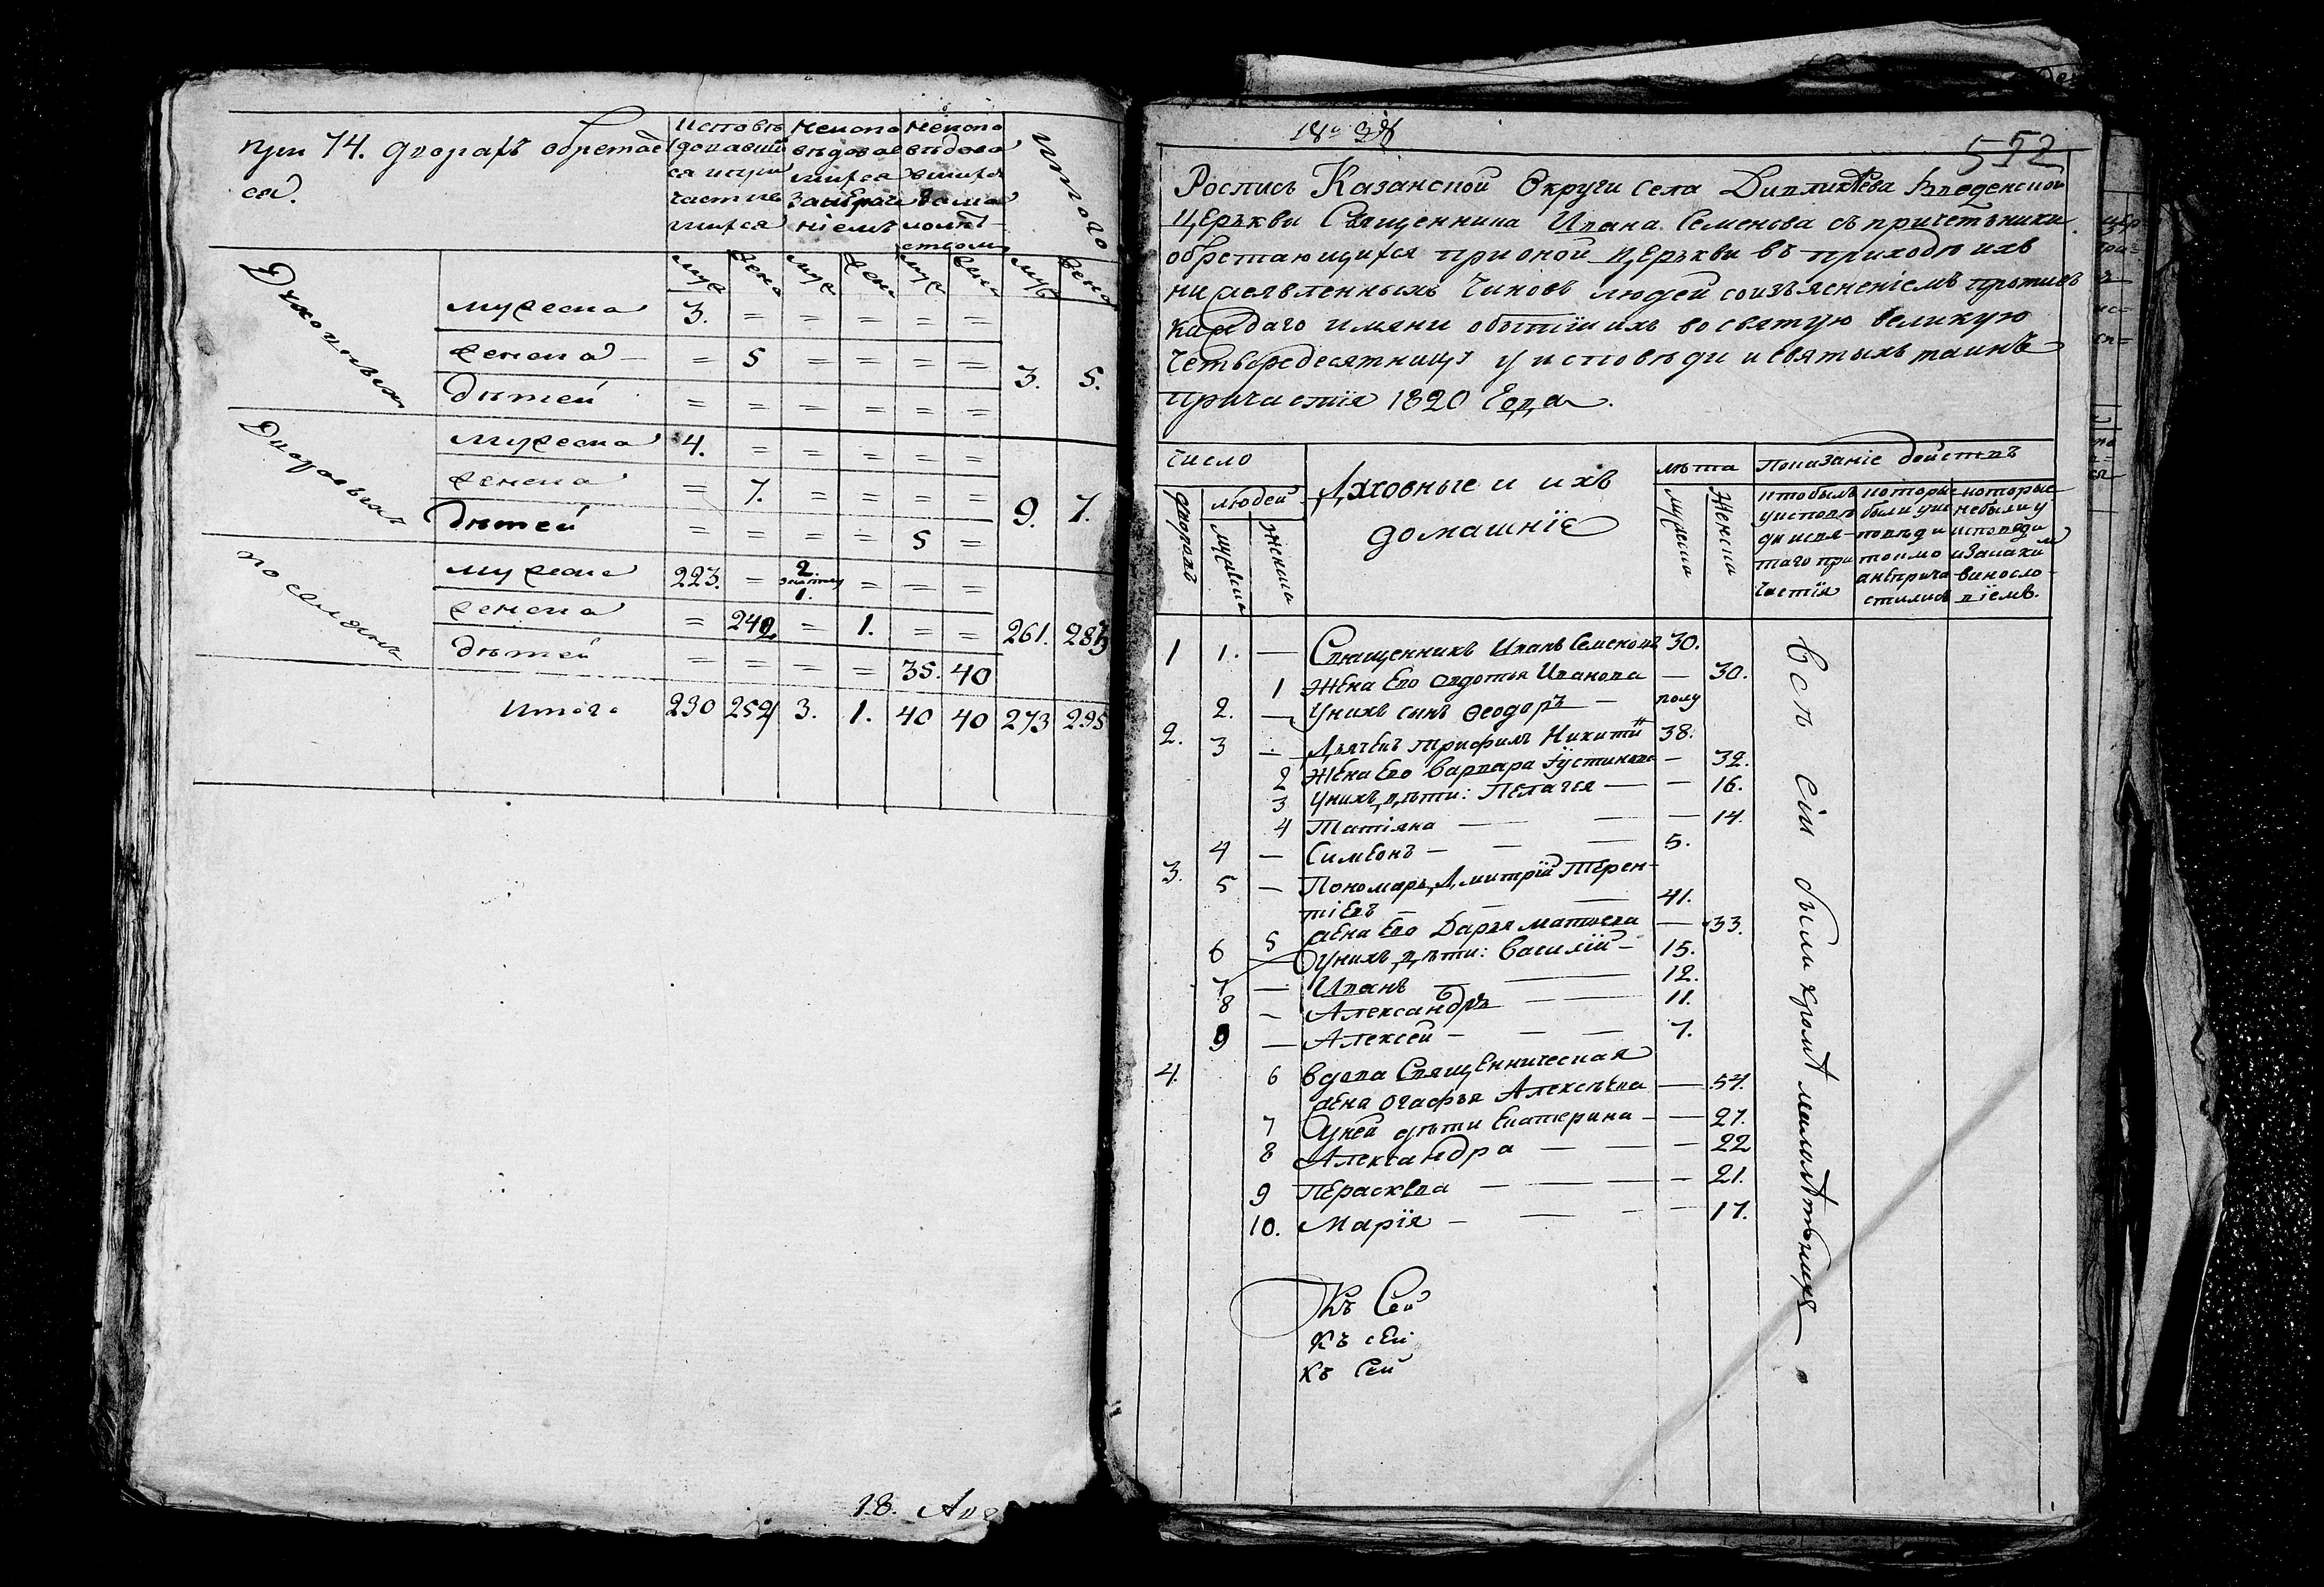 при 74. дворахъ обретает
ся.
Исповѣ
довавши
ся и при
частив
шихся
Неиспо
вѣдовав
шихся
за нерач
ніемъ
Неиспо
вѣдова
вшихся
за мало
лѣт
ством
итого
муж жена муж жен муж жена муж жена
Духовных
мужеска 3. = = = = =
женска = 5 = = = =
дѣтей = = = = = =
3. 5.
Дворовых
мужеска 4. = = = = =
женска = 7. = = = =
дѣтей = = = = 5 =
9. 7.
поселянъ
мужеска 223. = 2. 1. = = =
женска = 242 = 1. = =
дѣтей = = = = 35. 40
261. 283
Итого 230 254 3. 1. 40 40 273 295
18. Апр
552
Роспись Казанской Округи села Введенской
Церькви Священника Ивана Семенова съ причетники
обретающихся при оной церькви въ приходѣ ихъ
нижеявленныхъ чиновъ людей со изъясненіемъ противъ
каждаго имяни о бытіи ихъ во святую великую
четыредесятницу у исповѣди и святыхъ таинъ
причастія 1820 года.
число
Духовные и ихъ
домашніе
лѣта
Показаніе действъ
дворовъ
людей
мужеска
женска
мужеска
женска
кто былъ
у исповѣ
ди и свя-
таго при
частія
которые
были у ис
повѣди
токмо
не прича
стились
которые
не были у
исповеди
и за каки
м
винословіемъ.
1 1. — Священникъ Иванъ Семеновъ 30.
1 жена его Авдотья Иванова — 30.
2. — У нихъ сынъ Феодоръ — полу
2. 3 — Дьячекъ Трифилъ Никитин 38.
2 жена его Варвара Іустинова — 32.
3 У нихъ дѣти: Пелагея — — 16.
4 Татіяна — — — 14.
4 — Симеонъ — — — 5.
3. 5 — Пономарь Дмитрій Терен-
тіевъ — — — 41.
5 жена его Дарья Матвева — 33.
6 — У нихъ дѣти: Василій — 15.
7 — Иванъ — — 12.
8 — Александръ — — 11.
9 — Алексей — — — 7.
4. 6 Вдова Священническая
жена Агафья Алексѣева — 54.
7 У ней дѣти Екатерина — — 27.
8 Александра — — — 22
9 Перасквва — — — — 21.
10. Марія — — — — 17.
Всѣ сіи были кромѣ малолѣтныхъ
Къ Сей
Къ сей
Къ Сей